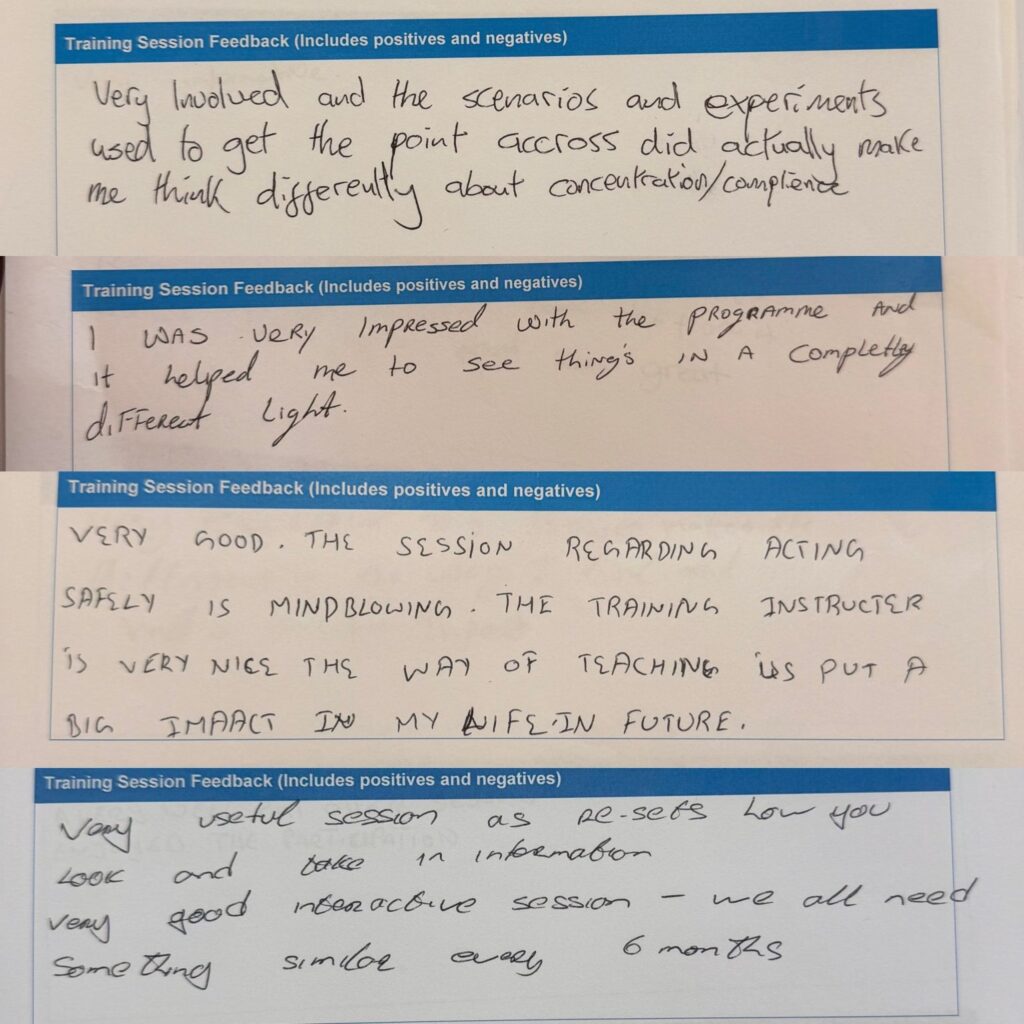 Training Session Feedback (Includes positives and negatives)
Very Involved and the scenarios and experiments
used to get the point accross did actually make
me think differently about concentration/complience
Training Session Feedback (Includes positives and negatives)
I WAS VERY Impressed with the PROGRAMME AND
it helped me to see thing's IN A Completly
different Light.
Training Session Feedback (Includes positives and negatives)
VERY GOOD. THE SESSION REGARDING ACTING
SAFELY IS MINDBLOWING. THE TRAINING INSTRUCTER
is VERY NICE THE WAY OF TEACHING us PUT A
BIG IMPACT IN MY LIFE IN FUTURE.
Training Session Feedback (Includes positives and negatives)
Very useful session as re-sets how you
LOOK and take in information
very good interactive session - we all need
Something similar every 6 months